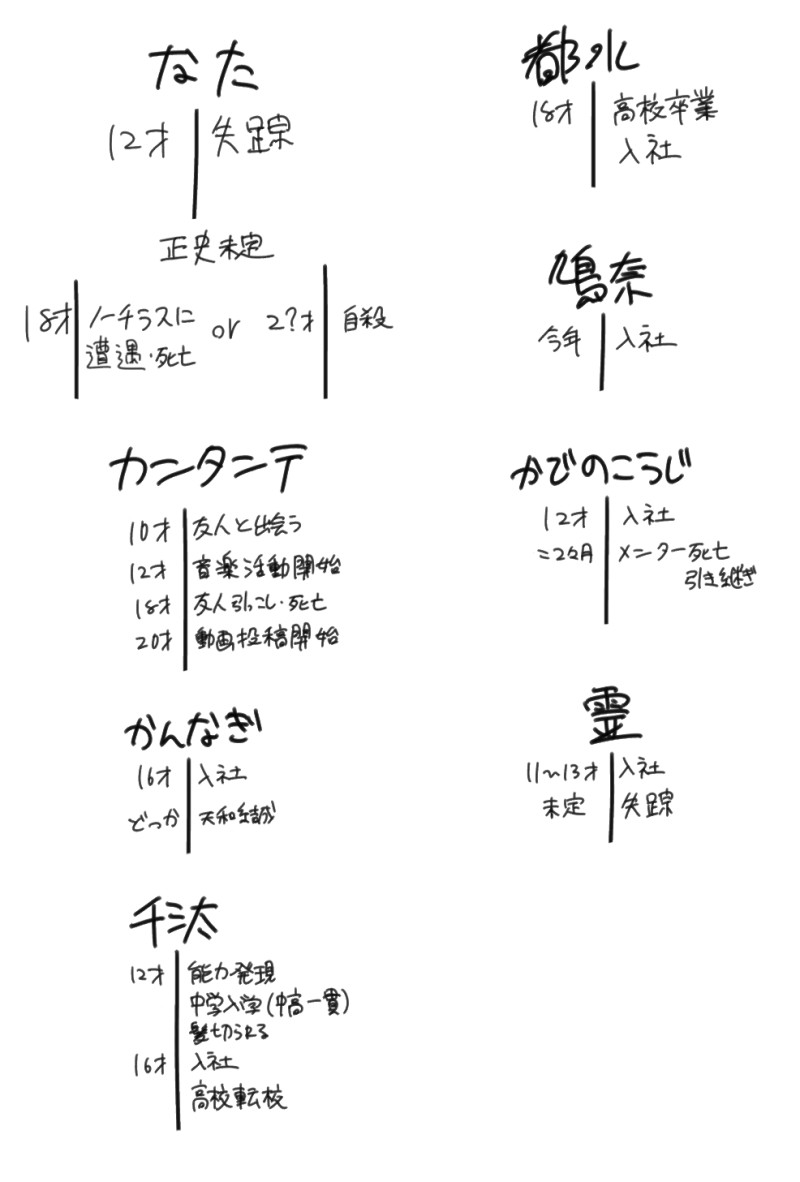 なた
12才 失踪
正史未定
18才 ノーチラスに
遭遇・死亡
or
2?才 自殺
カンタンテ
10才 友人と出会う
12才 音楽活動開始
18才 友人引っこし・死亡
20才 動画投稿開始
かんなぎ
16才 入社
どっか 天和結成
千汰
12才 能力発現
中学入学(中高一貫)
髪切られる
16才 入社
高校転校
都水
18才 高校卒業
入社
鳩奈
今年 入社
かでのこうじ
12才 入社
メンター死亡
引き継ぎ
霊
11〜13才 入社
未定 失踪